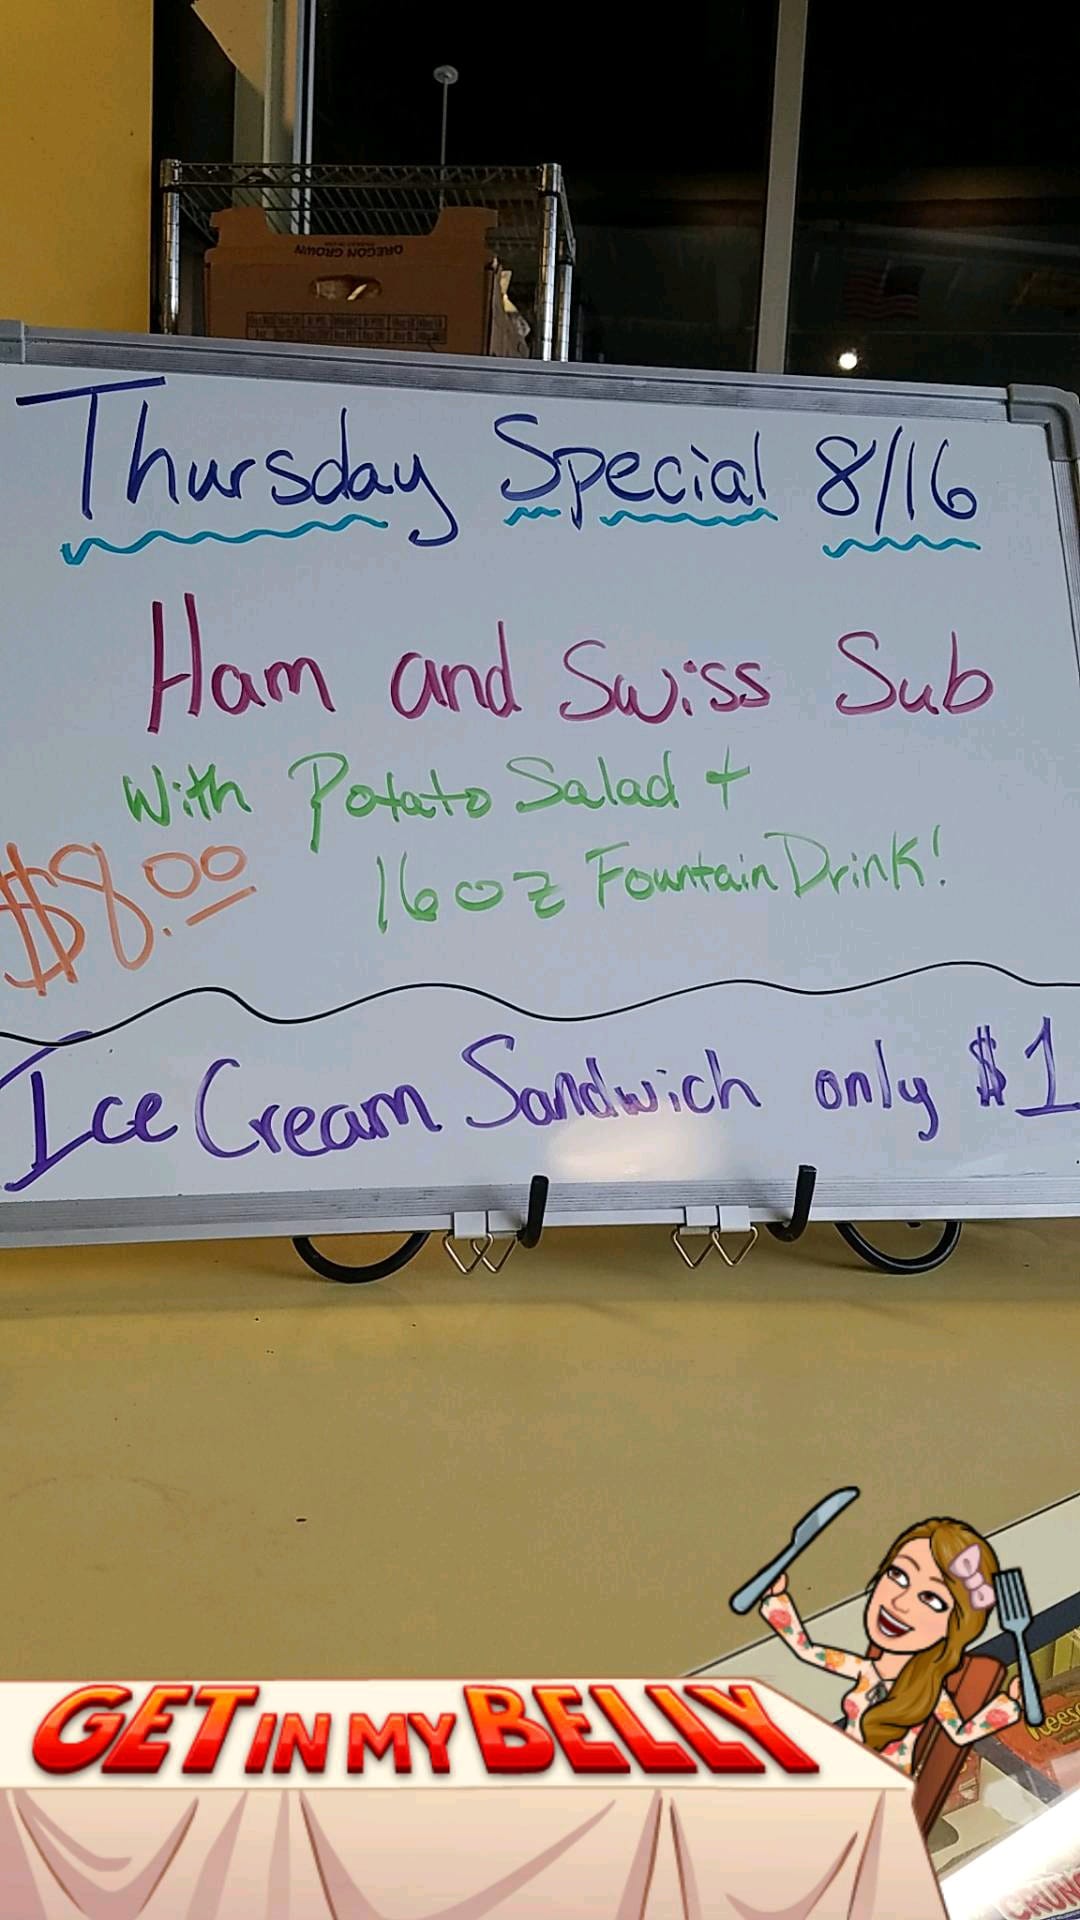 OREGON GROWN
Thursday Special 8/16
Ham and Swiss Sub
With Potato Salad +
$8.00
16 oz Fountain Drink!
Ice Cream Sandwich only $1
GET IN MY BELLY
Reese
CRUNC